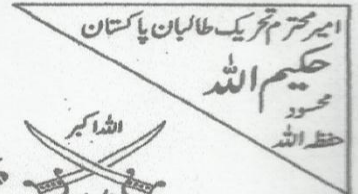 امیر محترم تحریک طالبان پاکستان
حکیم اللہ
محسود
حفظ اللہ
اللہ اکبر